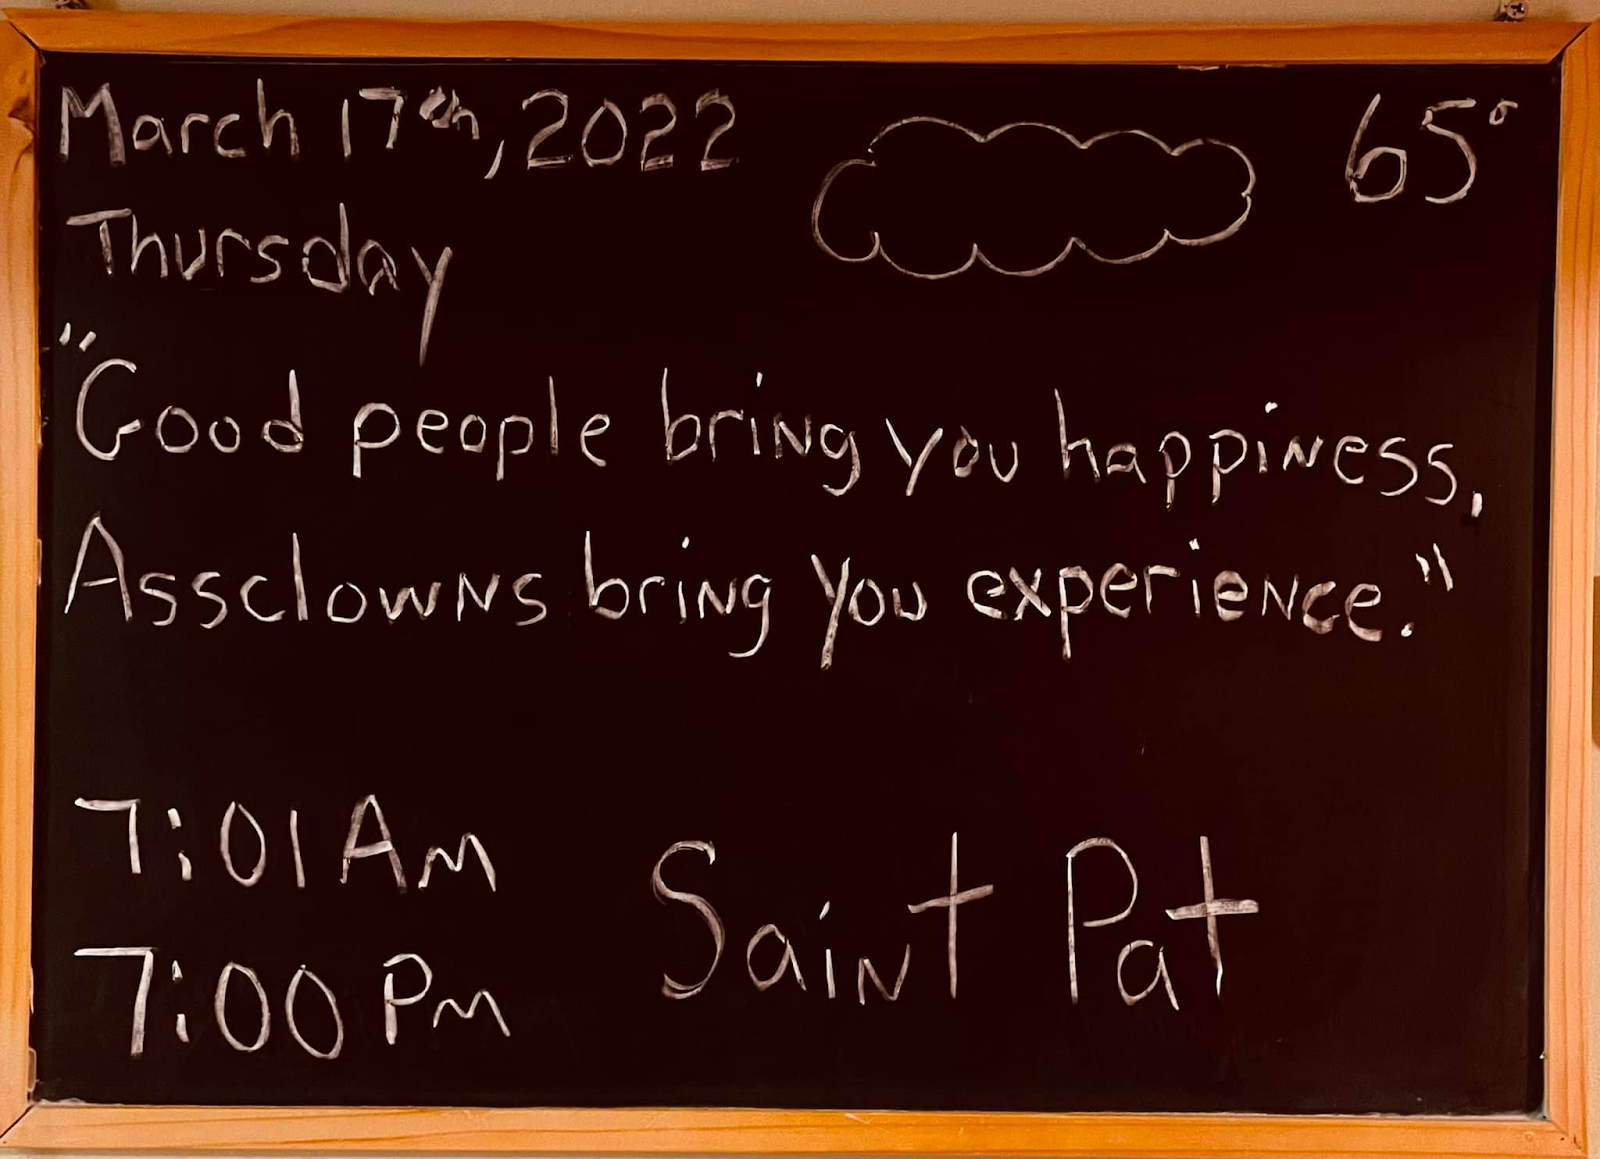 March 17th, 2022
65°
Thursday
"Good people bring you happiness,
Assclowns bring you experience."
7:01 AM
7:00 PM
Saint Pat